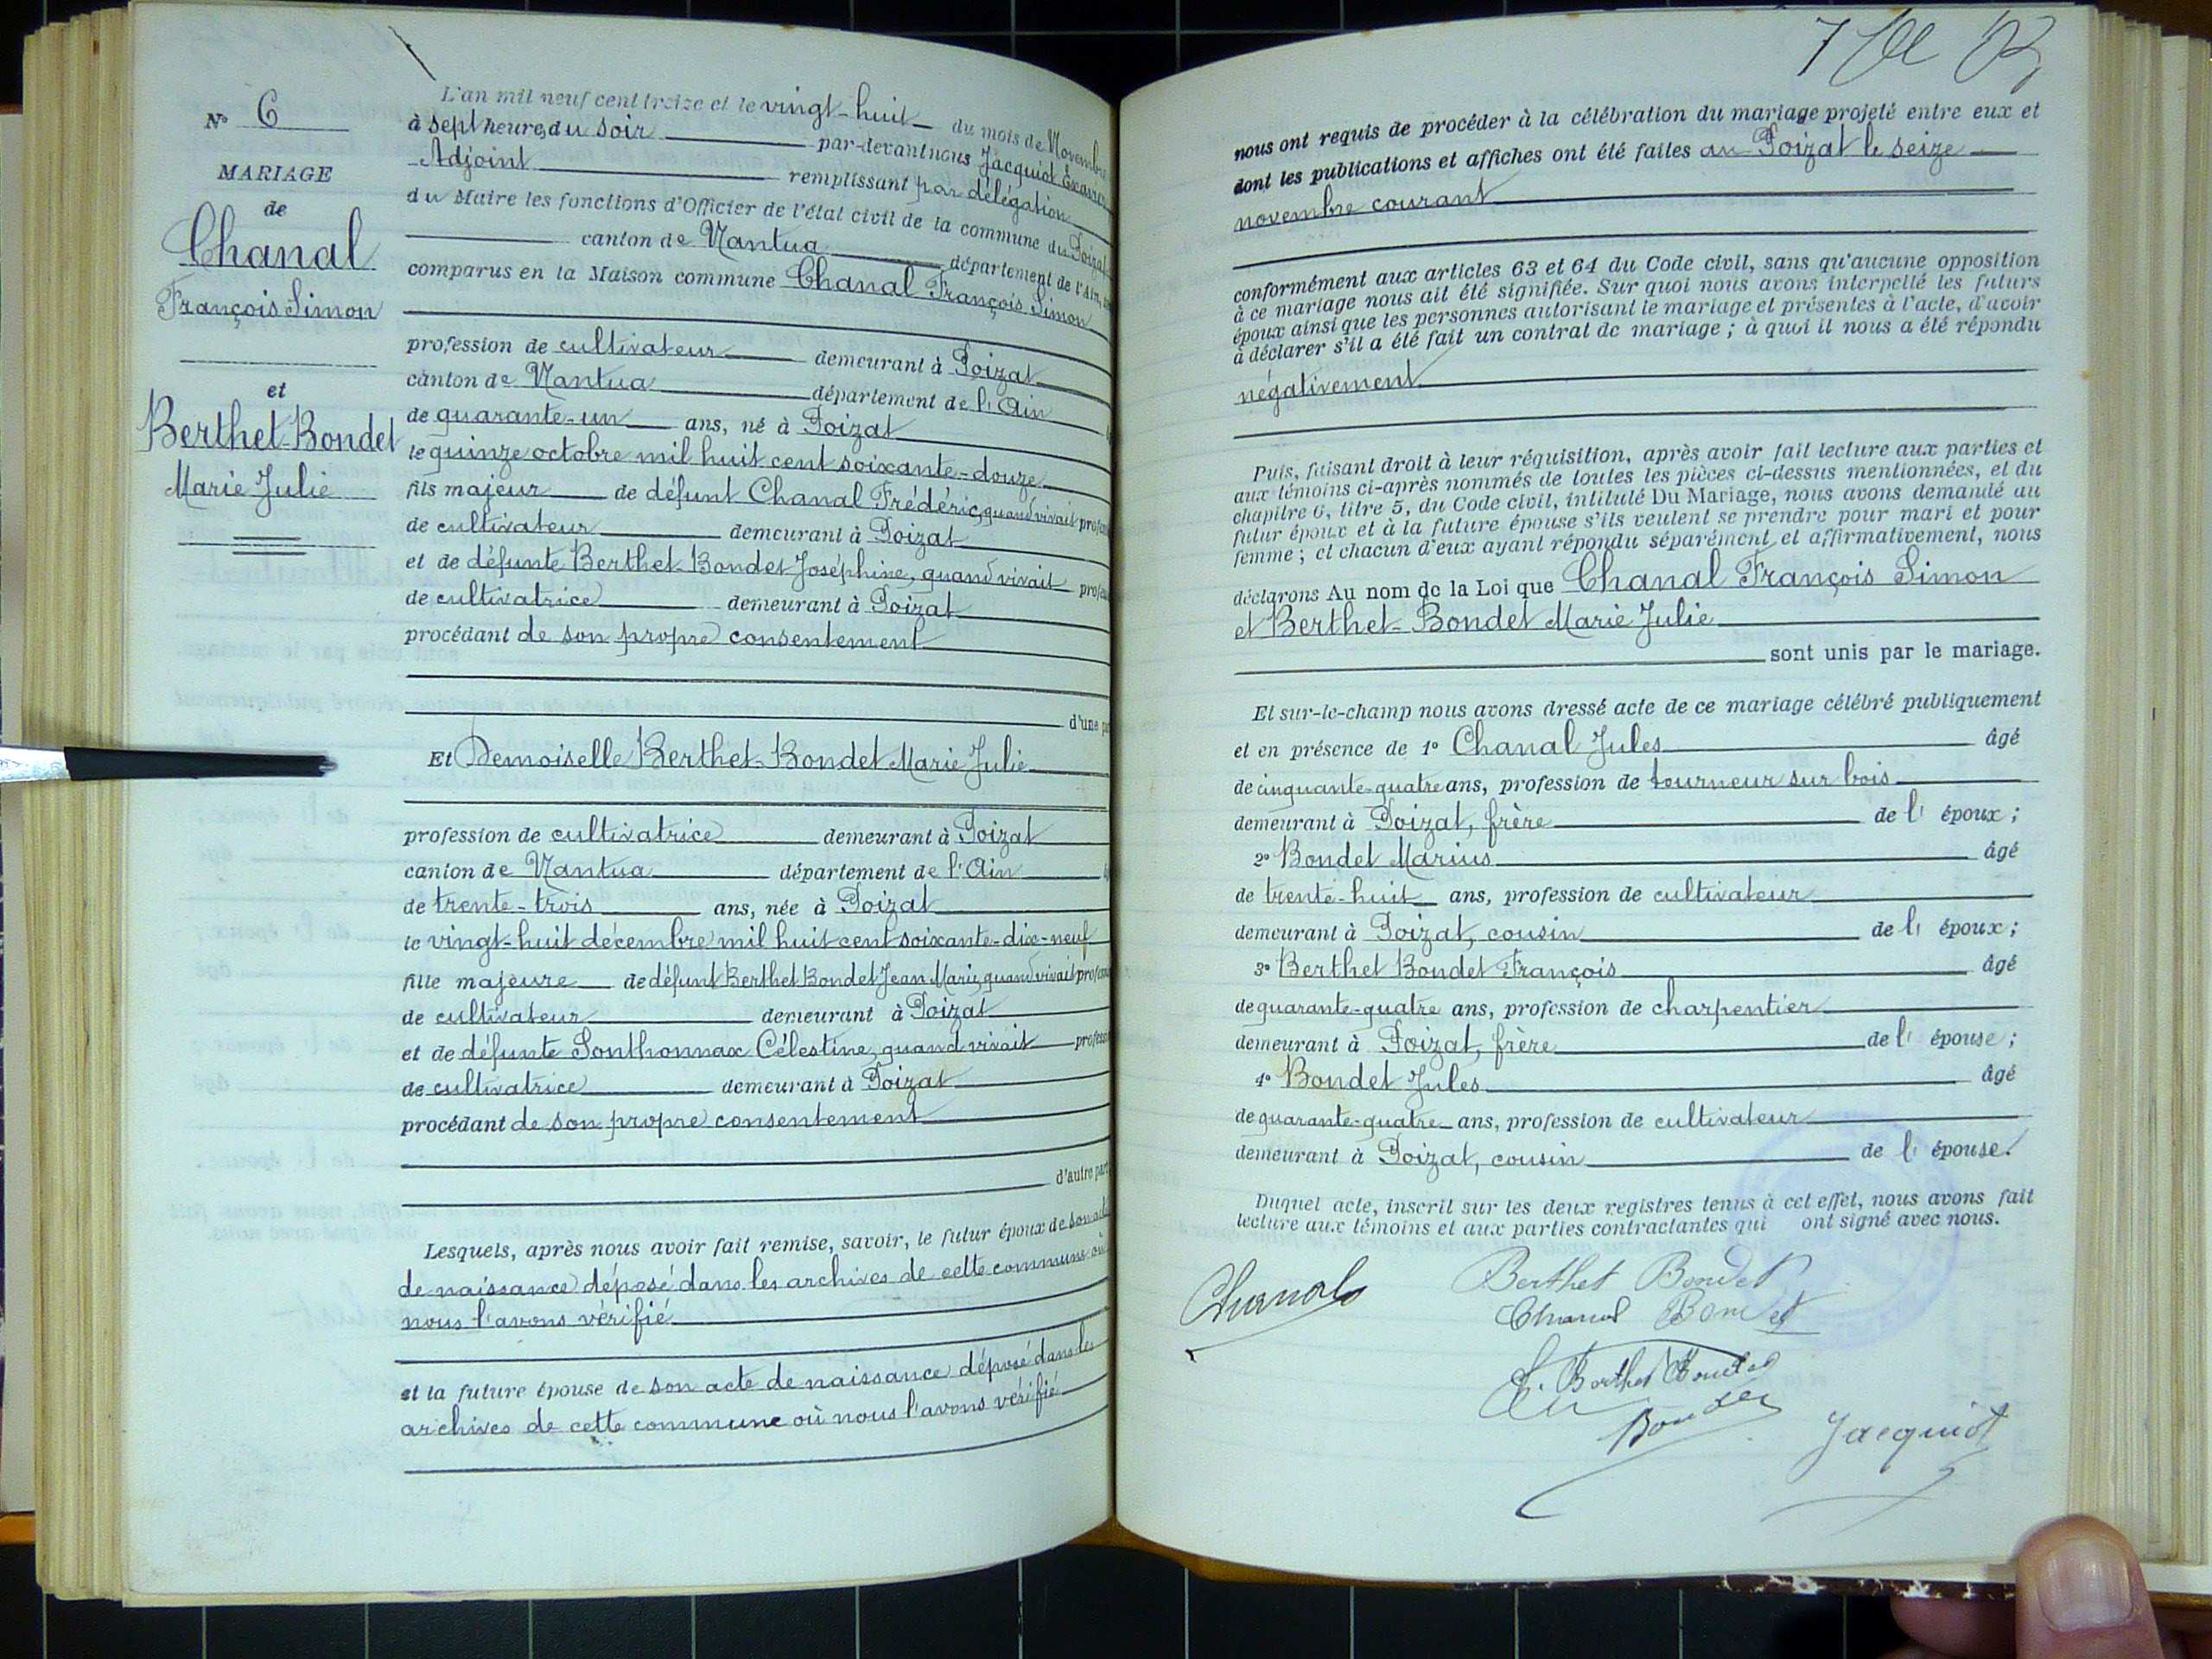 N° 6
MARIAGE
de
Chanal
François Simon
et
Berthet-Bondet
Marie Julie
L'an mil neuf cent treize et le vingt-huit du mois de Novembre
à sept heures du soir par-devant nous Jacquiot
Adjoint remplissant par délégation
du Maire les fonctions d'Officier de l'état civil de la commune du Poizat
canton de Nantua département de l'Ain,
comparus en la Maison commune Chanal François Simon
profession de cultivateur demeurant à Poizat
canton de Nantua département de l'Ain
de quarante-un ans, né à Poizat
le quinze octobre mil huit cent soixante-douze
fils majeur de défunt Chanal Frédéric, quand vivait
de cultivateur demeurant à Poizat
et de défunte Berthet-Bondet Joséphine, quand vivait
de cultivatrice demeurant à Poizat
procédant de son propre consentement
d'une
Et Demoiselle Berthet-Bondet Marie Julie
profession de cultivatrice demeurant à Poizat
canton de Nantua département de l'Ain
de trente-trois ans, née à Poizat
le vingt-huit décembre mil huit cent soixante-dix-neuf
fille majeure de défunt Berthet Bondet Jean Marie, quand vivait
de cultivateur demeurant à Poizat
et de défunte Sonthonnax Célestine, quand vivait
de cultivatrice demeurant à Poizat
procédant de son propre consentement
d'autre part
Lesquels, après nous avoir fait remise, savoir, le futur époux de son acte
de naissance déposé dans les archives de cette commune où
nous l'avons vérifié
et la future épouse de son acte de naissance déposé dans les
archives de cette commune où nous l'avons vérifié
nous ont requis de procéder à la célébration du mariage projeté entre eux et
dont les publications et affiches ont été faites au Poizat le seize
novembre courant
conformément aux articles 63 et 64 du Code civil, sans qu'aucune opposition
à ce mariage nous ait été signifiée. Sur quoi nous avons interpellé les futurs
époux ainsi que les personnes autorisant le mariage et présentes à l'acte, d'avoir
à déclarer s'il a été fait un contrat de mariage ; à quoi il nous a été répondu
négativement
Puis, faisant droit à leur réquisition, après avoir fait lecture aux parties et
aux témoins ci-après nommés de toutes les pièces ci-dessus mentionnées, et du
chapitre 6, titre 5, du Code civil, intitulé Du Mariage, nous avons demandé au
futur époux et à la future épouse s'ils veulent se prendre pour mari et pour
femme ; et chacun d'eux ayant répondu séparément et affirmativement, nous
déclarons Au nom de la Loi que Chanal François Simon
et Berthet-Bondet Marie Julie
sont unis par le mariage.
Et sur-le-champ nous avons dressé acte de ce mariage célébré publiquement
et en présence de 1° Chanal Jules âgé
de cinquante-quatre ans, profession de tourneur sur bois
demeurant à Poizat, frère de l' époux ;
2° Bondet Marius âgé
de trente-huit ans, profession de cultivateur
demeurant à Poizat, cousin de l' époux ;
3° Berthet Bondet François âgé
de quarante-quatre ans, profession de charpentier
demeurant à Poizat, frère de l' épouse ;
4° Bondet Jules âgé
de quarante-quatre ans, profession de cultivateur
demeurant à Poizat, cousin de l' épouse.
Duquel acte, inscrit sur les deux registres tenus à cet effet, nous avons fait
lecture aux témoins et aux parties contractantes qui ont signé avec nous.
Berthet Bondet
Chanal Bondet
Berthet Bondet
Bondet
Jacquiot